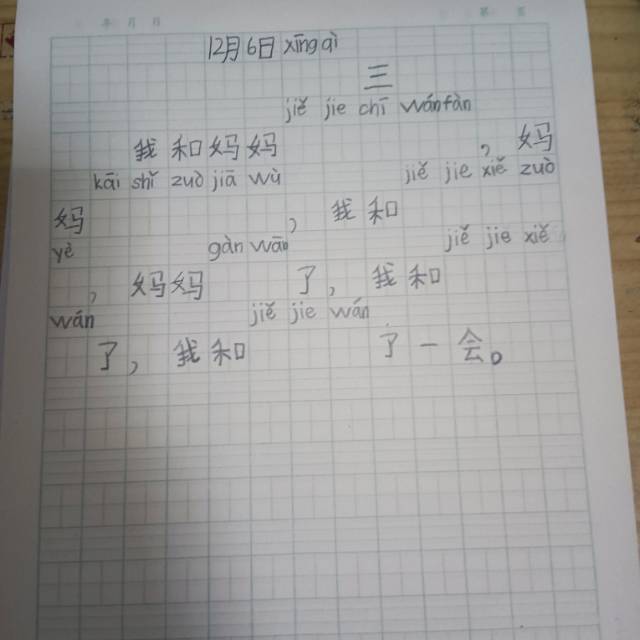 12月6日 xīng qì
三
jiě jie chī wánfàn
我和妈妈 ，妈
kāi shǐ zuò jiā wù jiě jie xiě zuò
妈 ，我和
yè gàn wán jiě jie xiě
，妈妈 了，我和
wán jiě jie wán
了，我和 了一会。